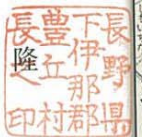 長野県
下伊那郡
豊丘村
長之印
隆